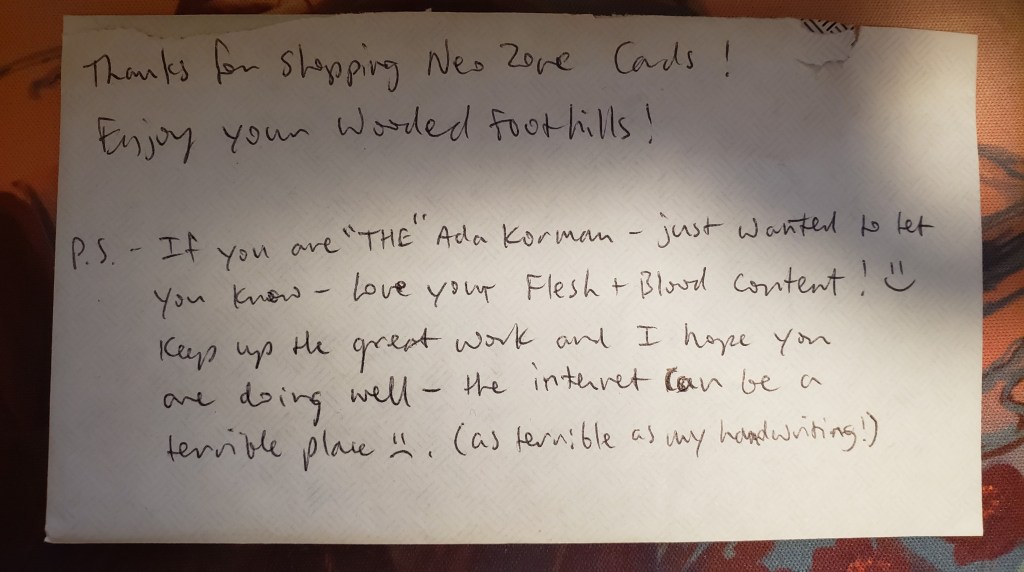 Thanks for Shopping Neo Zone Cards!
Enjoy your Wooded Foothills!
P.S. - If you are "THE" Ada Korman - just wanted to let
you know - love your Flesh + Blood content! :)
Keep up the great work and I hope you
are doing well - the internet can be a
terrible place :(. (as terrible as my handwriting!)